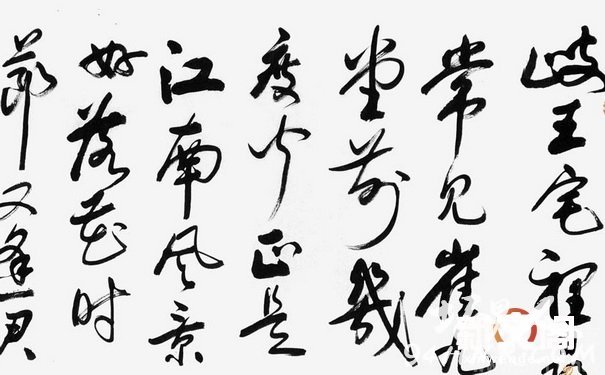 岐王宅裡
常见崔九
堂前幾
度闻正是
江南风景
好落花时
节又逢君